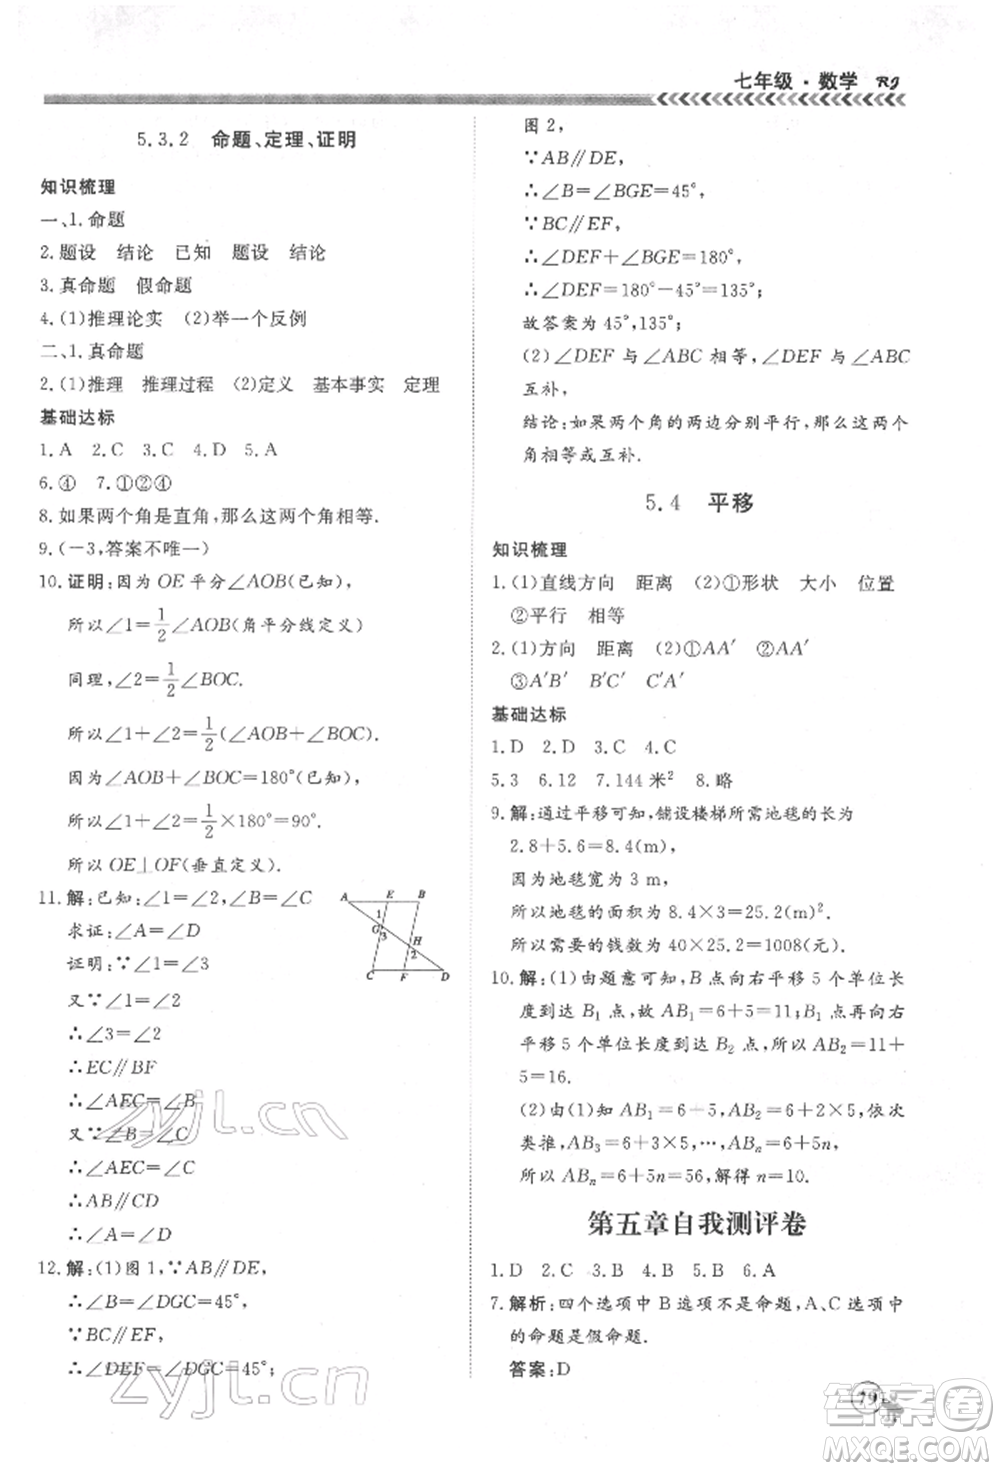 七年级·数学 RJ
5.3.2 命题、定理、证明
知识梳理
一、1.命题
2.题设 结论 已知 题设 结论
3.真命题 假命题
4.(1)推理论实 (2)举一个反例
二、1.真命题
2.(1)推理 推理过程 (2)定义 基本事实 定理
基础达标
1.A 2.C 3.C 4.D 5.A
6.④ 7.①②④
8.如果两个角是直角,那么这两个角相等.
9.(-3,答案不唯一)
10.证明:因为OE平分∠AOB(已知),
所以∠1=1/2∠AOB(角平分线定义)
同理,∠2=1/2∠BOC.
所以∠1+∠2=1/2(∠AOB+∠BOC).
因为∠AOB+∠BOC=180°(已知),
所以∠1+∠2=1/2×180°=90°.
所以OE⊥OF(垂直定义).
11.解:已知:∠1=∠2,∠B=∠C
求证:∠A=∠D
证明:∵∠1=∠3
又∵∠1=∠2
∴∠3=∠2
∴EC∥BF
∴∠AEC=∠B
又∵∠B=∠C
∴∠AEC=∠C
∴AB∥CD
∴∠A=∠D
A E B
1
G 3
H
2
C F D
12.解:(1)图1,∵AB∥DE,
∴∠B=∠DGC=45°,
∵BC∥EF,
∴∠DEF=∠DGC=45°;
图2,
∵AB∥DE,
∴∠B=∠BGE=45°,
∵BC∥EF,
∴∠DEF+∠BGE=180°,
∴∠DEF=180°-45°=135°;
故答案为45°,135°;
(2)∠DEF与∠ABC相等,∠DEF与∠ABC
互补.
结论:如果两个角的两边分别平行,那么这两个
角相等或互补.
5.4 平移
知识梳理
1.(1)直线方向 距离 (2)①形状 大小 位置
②平行 相等
2.(1)方向 距离 (2)①AA′ ②AA′
③A′B′ B′C′ C′A′
基础达标
1.D 2.D 3.C 4.C
5.3 6.12 7.144米² 8.略
9.解:通过平移可知,铺设楼梯所需地毯的长为
2.8+5.6=8.4(m),
因为地毯宽为3 m,
所以地毯的面积为8.4×3=25.2(m)².
所以需要的钱数为40×25.2=1008(元).
10.解:(1)由题意可知,B点向右平移5个单位长
度到达B₁点,故AB₁=6+5=11;B₁点再向右
平移5个单位长度到达B₂点,所以AB₂=11+
5=16.
(2)由(1)知AB₁=6+5,AB₂=6+2×5,依次
类推,AB₃=6+3×5,…,ABₙ=6+5n,
所以ABₙ=6+5n=56,解得n=10.
第五章自我测评卷
1.D 2.C 3.B 4.B 5.B 6.A
7.解析:四个选项中B选项不是命题,A、C选项中
的命题是假命题.
答案:D
79
zyjl.cn
zyjl.cn
答案圈
MXQE.COM